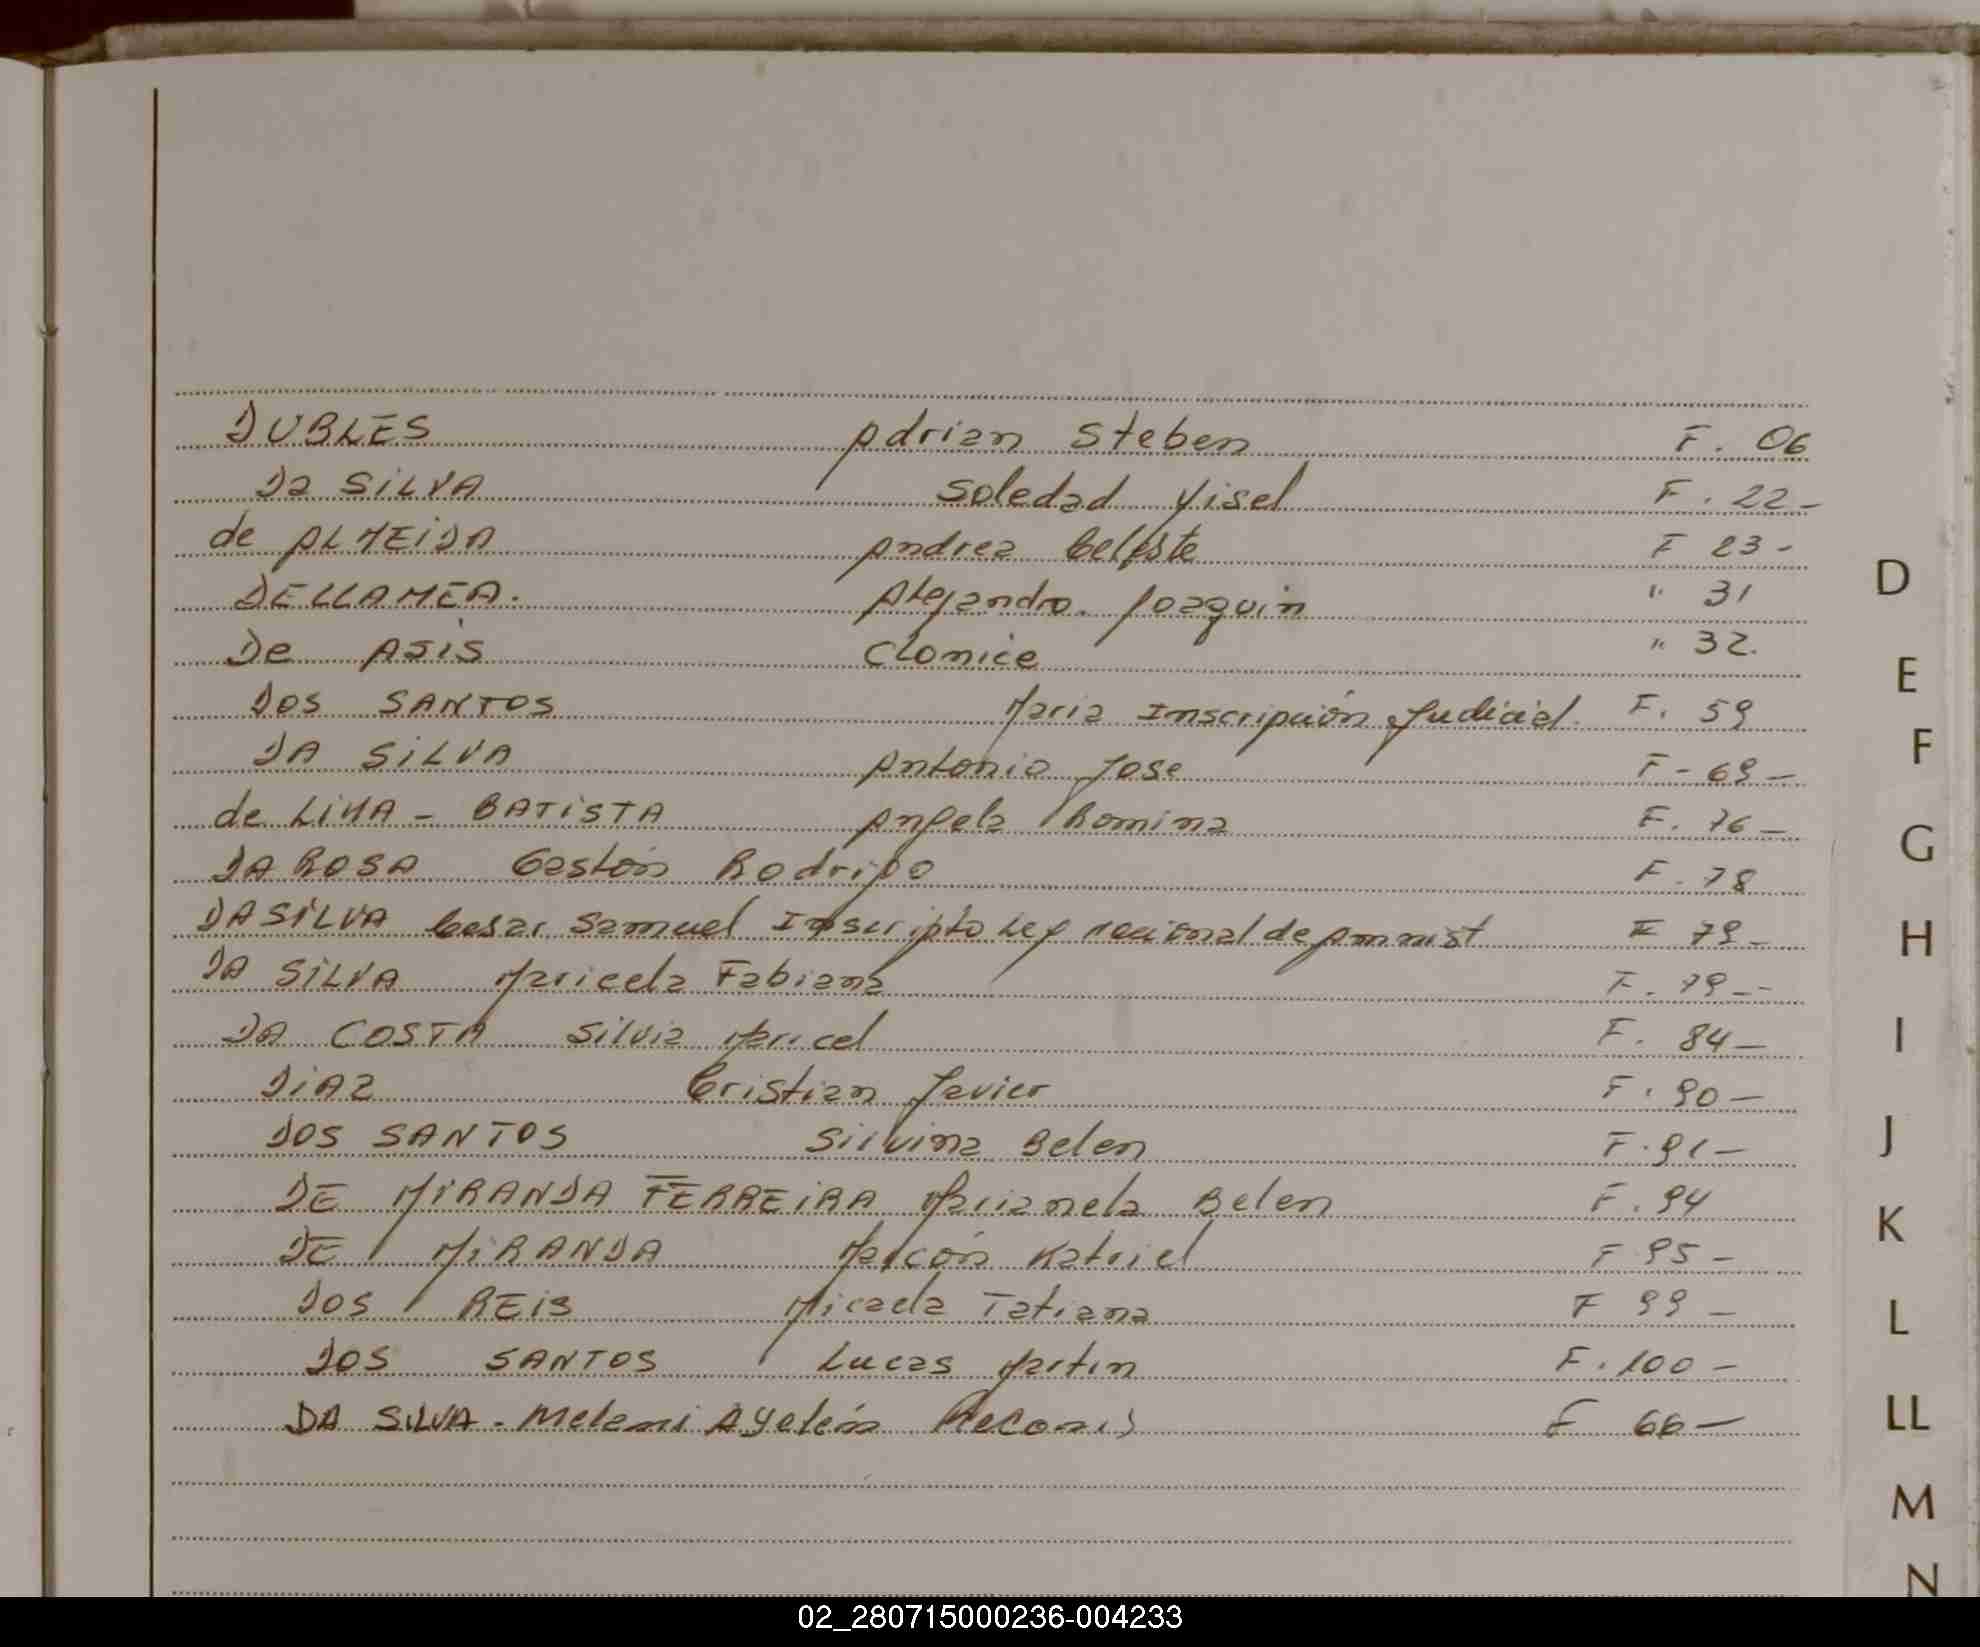 DUBLES Adrian Steben F. 06
Da SILVA Soledad Yisel F. 22-
de ALMEIDA Andrea Celeste F 23-
DELLAMEA. Alejandro Joaquin " 31
De ASIS Clonice " 32.
DOS SANTOS Maria Inscripción Judicial. F. 59
DA SILVA Antonio Jose F-69-
de LIMA - BATISTA Angela Romina F. 76-
DA ROSA Gastón Rodrigo F. 78
DA SILVA Cesar Samuel Inscripto Ley nacional de Amnist F 79-
DA SILVA Maricela Fabiana F. 79--
DA COSTA Silvia Maricel F. 84-
DIAZ Cristian Javier F. 90-
DOS SANTOS Silvina Belen F. 91-
DE MIRANDA FERREIRA Marianela Belen F. 94
DE MIRANDA Marcón Katriel F 95-
DOS REIS Micaela Tatiana F 99-
DOS SANTOS Lucas Martin F. 100-
DA SILVA - Melani Ayelén F 66-
D
E
F
G
H
I
J
K
L
LL
M
N
02_280715000236-004233